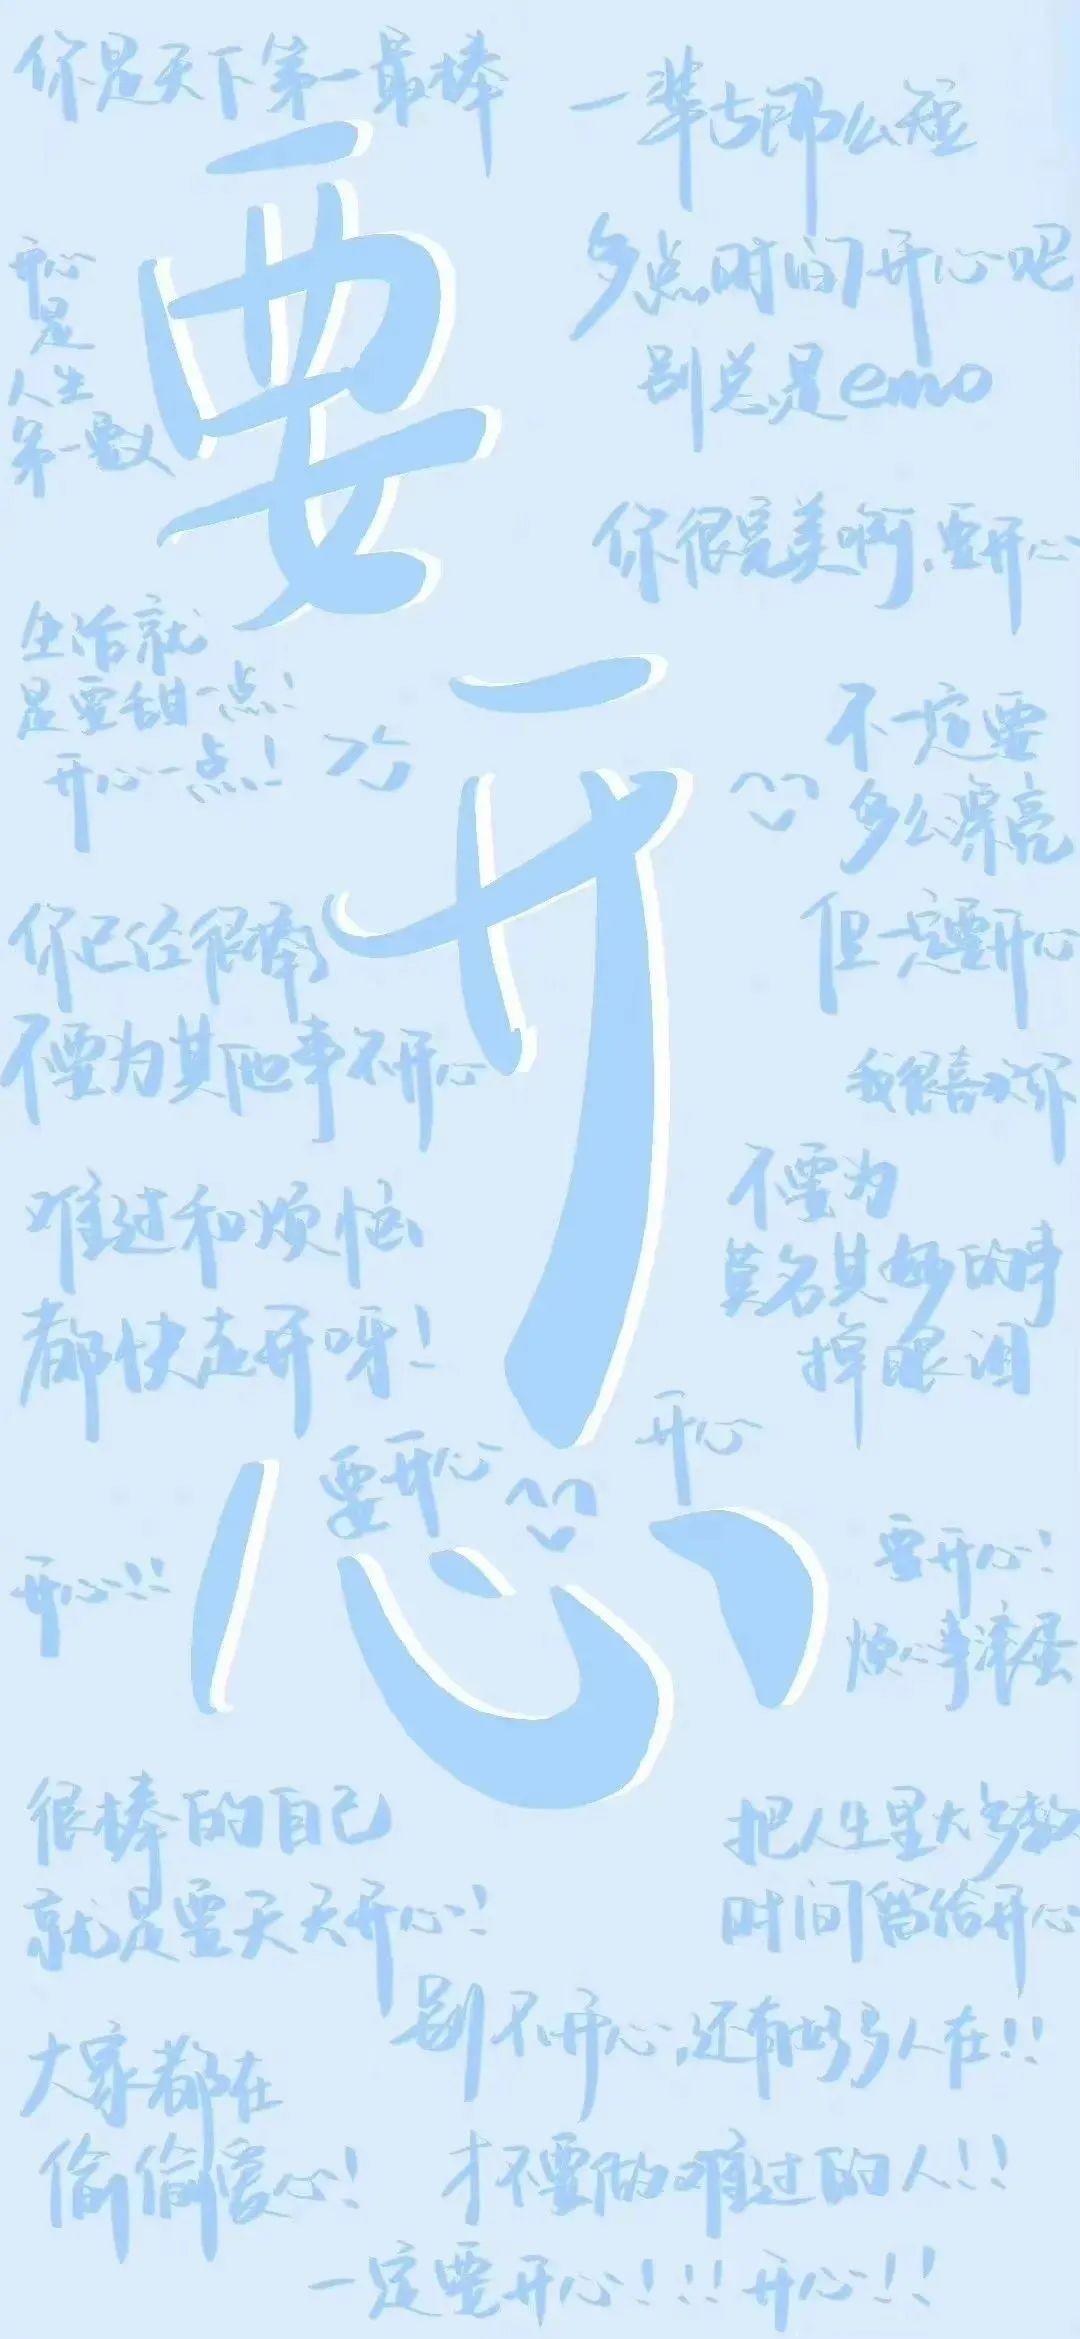 你是天下第一最棒
一辈子那么短
多点时间开心吧
别总是emo
开心
是
人生
第一要义
要
你很完美啊，要开心
生活就
是要甜一点！
开心一点！
开
不一定要
多么漂亮
但一定要开心
你已经很棒
不要为其他事不开心
我很喜欢你
难过和烦恼
都快走开呀！
不要为
莫名其妙的事
掉眼泪
要开心
开心
心
开心！！
要开心！
烦心事滚蛋
很棒的自己
就是要天天开心！
把人生里大多数
时间留给开心
别不开心，还有好多人在！！
大家都在
偷偷爱心！
才不要做难过的人！！
一定要开心！！！开心！！